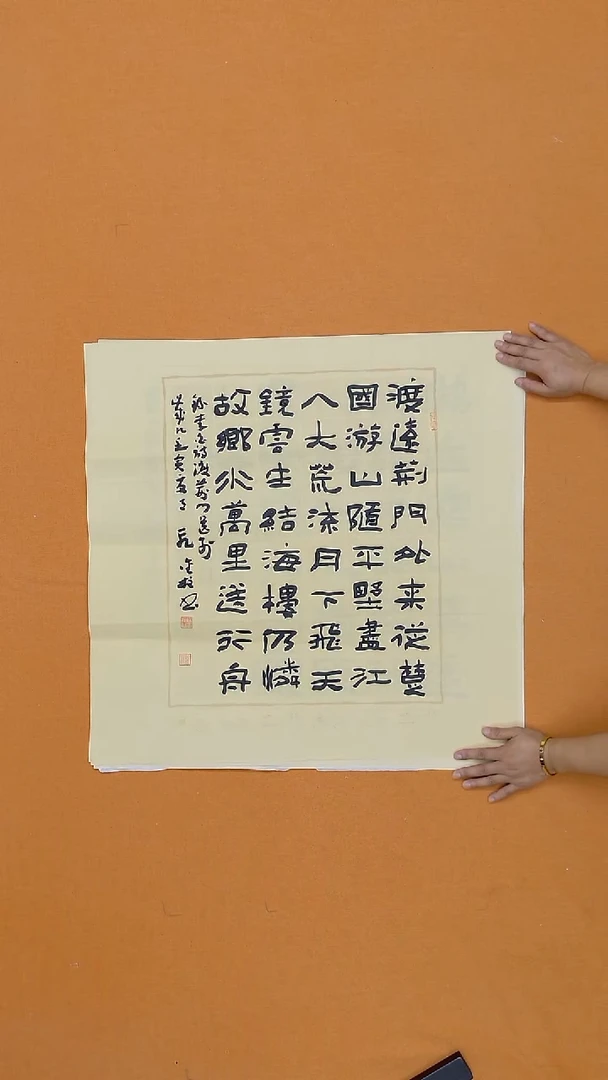 渡遠荆門外来從楚
國游山隨平野盡江
入大荒流月下飛天
鏡雲生結海樓仍憐
故鄉水萬里送行舟
錄李白詩渡荊门送別
歲次壬寅夏月